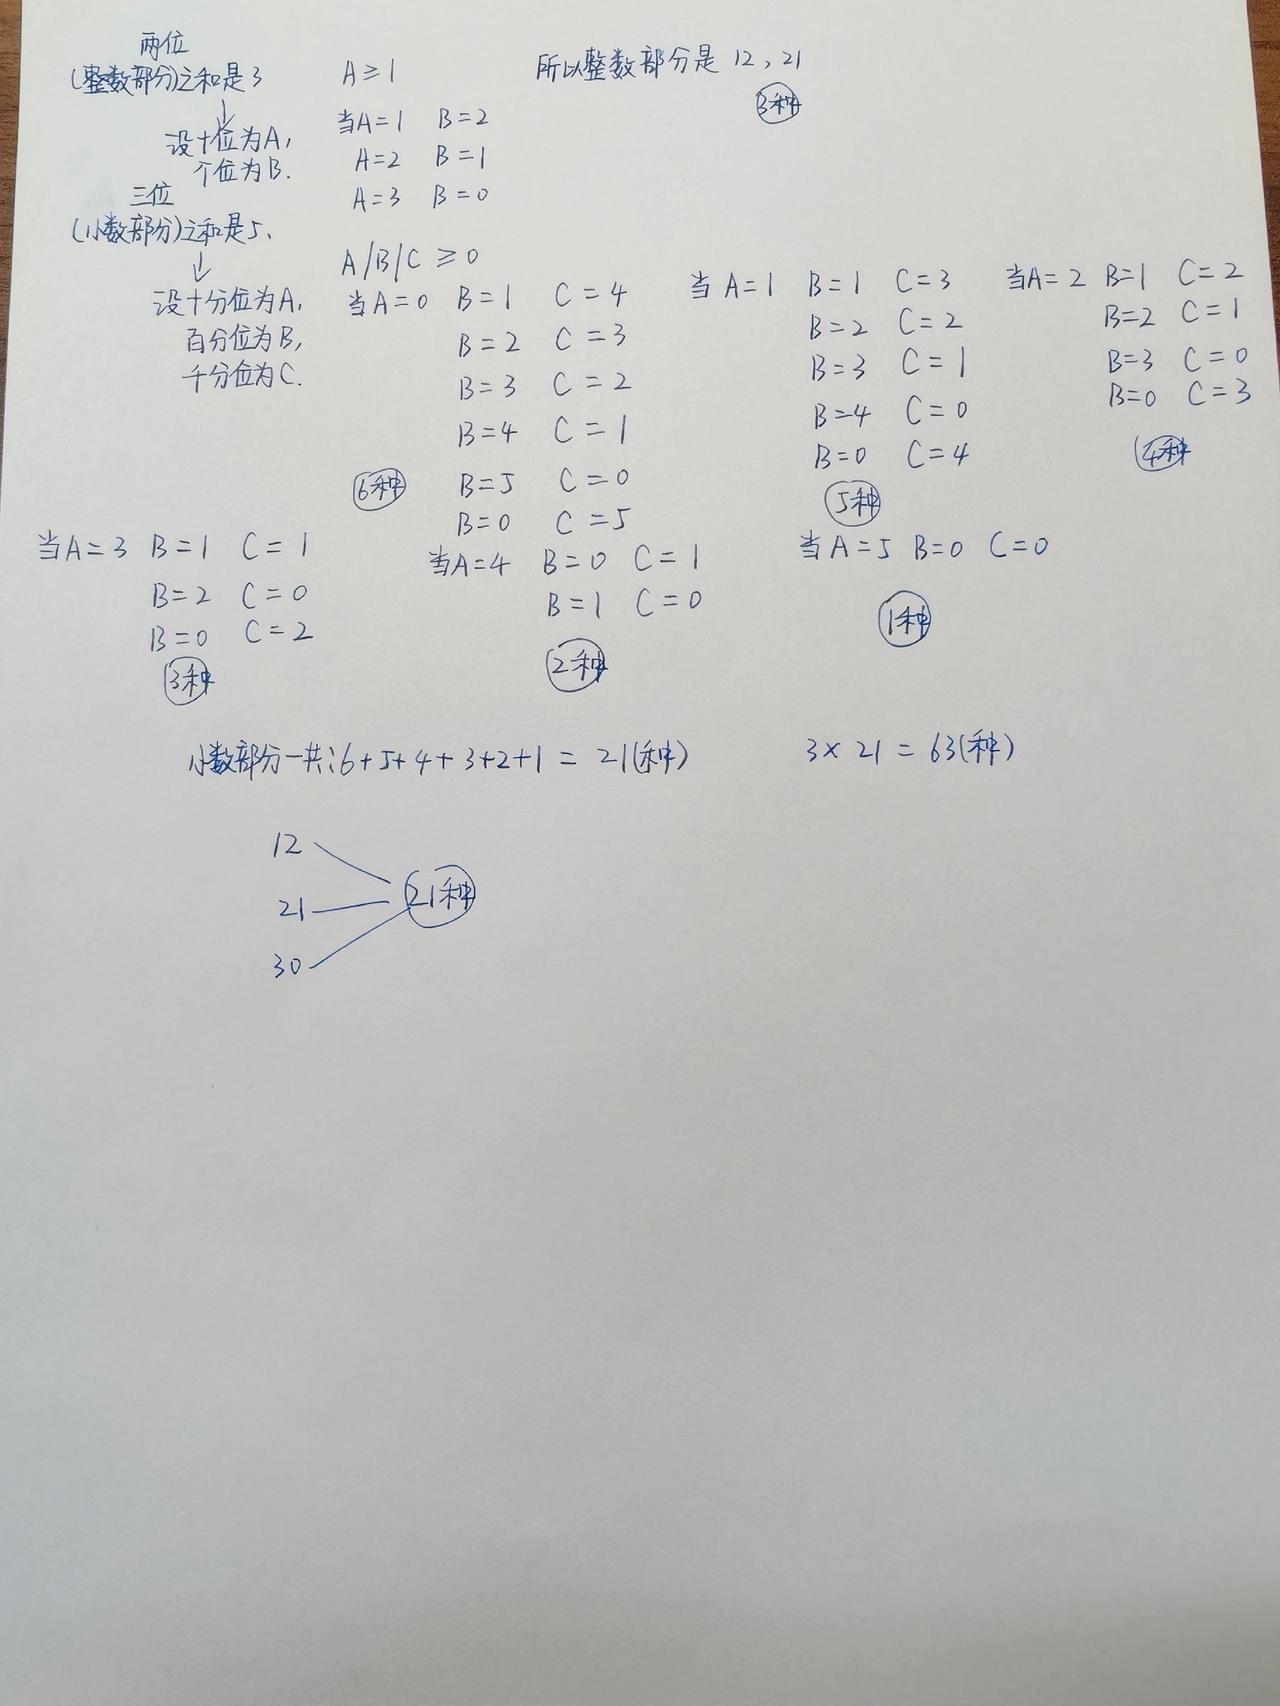 两位
(整数部分)之和是3
设十位为A,
个位为B.
A≥1
当A=1 B=2
A=2 B=1
A=3 B=0
所以整数部分是 12、21
3种
三位
(小数部分)之和是5、
设十分位为A,
百分位为B,
千分位为C.
A/B/C ≥0
当A=0 B=1 C=4
B=2 C=3
B=3 C=2
B=4 C=1
B=5 C=0
B=0 C=5
6种
当 A=1 B=1 C=3
B=2 C=2
B=3 C=1
B=4 C=0
B=0 C=4
5种
当A=2 B=1 C=2
B=2 C=1
B=3 C=0
B=0 C=3
4种
当A=3 B=1 C=1
B=2 C=0
B=0 C=2
3种
当A=4 B=0 C=1
B=1 C=0
2种
当A=5 B=0 C=0
1种
小数部分一共:6+5+4+3+2+1=21(种) 3×21=63(种)
12
21
30
21种